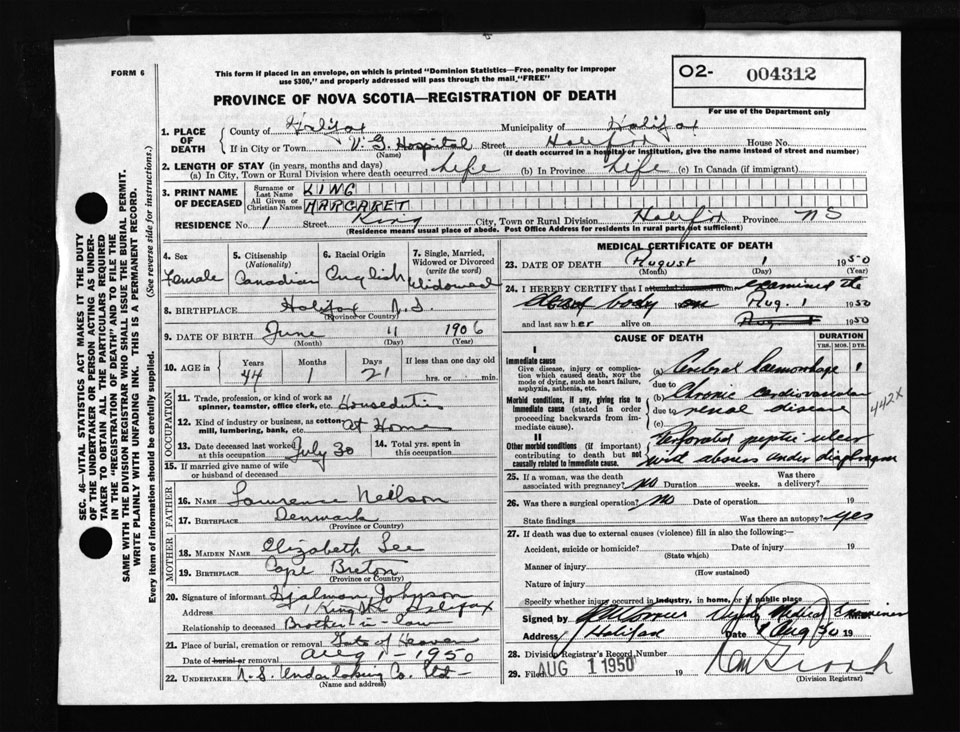 FORM 6
This form if placed in an envelope, on which is printed "Dominion Statistics—Free, penalty for improper
use $300," and properly addressed will pass through the mail, "FREE"
PROVINCE OF NOVA SCOTIA—REGISTRATION OF DEATH
O2- 004312
For use of the Department only
SEC. 46—VITAL STATISTICS ACT MAKES IT THE DUTY
OF THE UNDERTAKER OR PERSON ACTING AS UNDER-
TAKER TO OBTAIN ALL THE PARTICULARS REQUIRED
IN THE "REGISTRATION OF DEATH" AND TO FILE THE
SAME WITH THE DIVISION REGISTRAR WHO SHALL ISSUE THE BURIAL PERMIT.
WRITE PLAINLY WITH UNFADING INK. THIS IS A PERMANENT RECORD.
Every item of information should be carefully supplied. (See reverse side for instructions.)
1. PLACE OF DEATH
County of Halifax Municipality of Halifax
If in City or Town V. G. Hospital Street Halifax House No.
(Name) (If death occurred in a hospital or institution, give the name instead of street and number)
2. LENGTH OF STAY (in years, months and days)
(a) In City, Town or Rural Division where death occurred Life (b) In Province Life (c) In Canada (if immigrant)
3. PRINT NAME OF DECEASED
Surname or Last Name KING
All Given or Christian Names MARGARET
RESIDENCE No. 1 Street King City, Town or Rural Division Halifax Province NS
(Residence means usual place of abode. Post Office Address for residents in rural parts not sufficient)
4. Sex Female
5. Citizenship (Nationality) Canadian
6. Racial Origin English
7. Single, Married, Widowed or Divorced (write the word) Widowed
8. BIRTHPLACE Halifax N.S.
(Province or Country)
9. DATE OF BIRTH June 11 1906
(Month) (Day) (Year)
10. AGE in Years 44 Months 1 Days 21 If less than one day old hrs. or min.
OCCUPATION
11. Trade, profession, or kind of work as spinner, teamster, office clerk, etc. Houseduties
12. Kind of industry or business, as cotton mill, lumbering, bank, etc. At Home
13. Date deceased last worked at this occupation July 30
14. Total yrs. spent in this occupation
15. If married give name of wife or husband of deceased
FATHER
16. NAME Lawrence Neilson
17. BIRTHPLACE Denmark
(Province or Country)
MOTHER
18. MAIDEN NAME Elizabeth Lee
19. BIRTHPLACE Cape Breton
(Province or Country)
20. Signature of informant Hjalmar Johnson
Address 1 King Str Halifax
Relationship to deceased Brother-in-law
21. Place of burial, cremation or removal Gate of Heaven
Date of burial or removal Aug 1-1950
22. UNDERTAKER N.S. Undertaking Co. Ltd-
(Name and address)
MEDICAL CERTIFICATE OF DEATH
23. DATE OF DEATH August 1 1950
(Month) (Day) (Year)
24. I HEREBY CERTIFY that I attended deceased from examined the
dead body on Aug. 1 1950
and last saw her alive on August 1950
CAUSE OF DEATH
DURATION
YRS. MOS. DYS.
I
Immediate cause
Give disease, injury or complica-
tion which caused death, NOT the
mode of dying, such as heart failure,
asphyxia, asthenia, etc.
Morbid conditions, if any, giving rise to
immediate cause (stated in order
proceeding backwards from im-
mediate cause).
II
Other morbid conditions (if important)
contributing to death but not
causally related to immediate cause.
(a) Cerebral haemorrhage 1
due to
(b) Chronic cardiovascular
due to renal disease
(c)
442X
Perforated peptic ulcer
with abscess under diaphragm
25. If a woman, was the death associated with pregnancy? No Duration weeks. Was there a delivery?
26. Was there a surgical operation? No Date of operation 19
State findings Was there an autopsy? yes
27. If death was due to external causes (violence) fill in also the following:
Accident, suicide or homicide? Date of injury 19
(State which)
Manner of injury
(How sustained)
Nature of injury
Specify whether injury occurred in industry, in home, or in public place
Signed by Deputy Medical Examiner
Address Halifax Date 1 Aug 50 19
28. Division Registrar's Record Number
29. Filed AUG 1 1950 19
(Division Registrar)